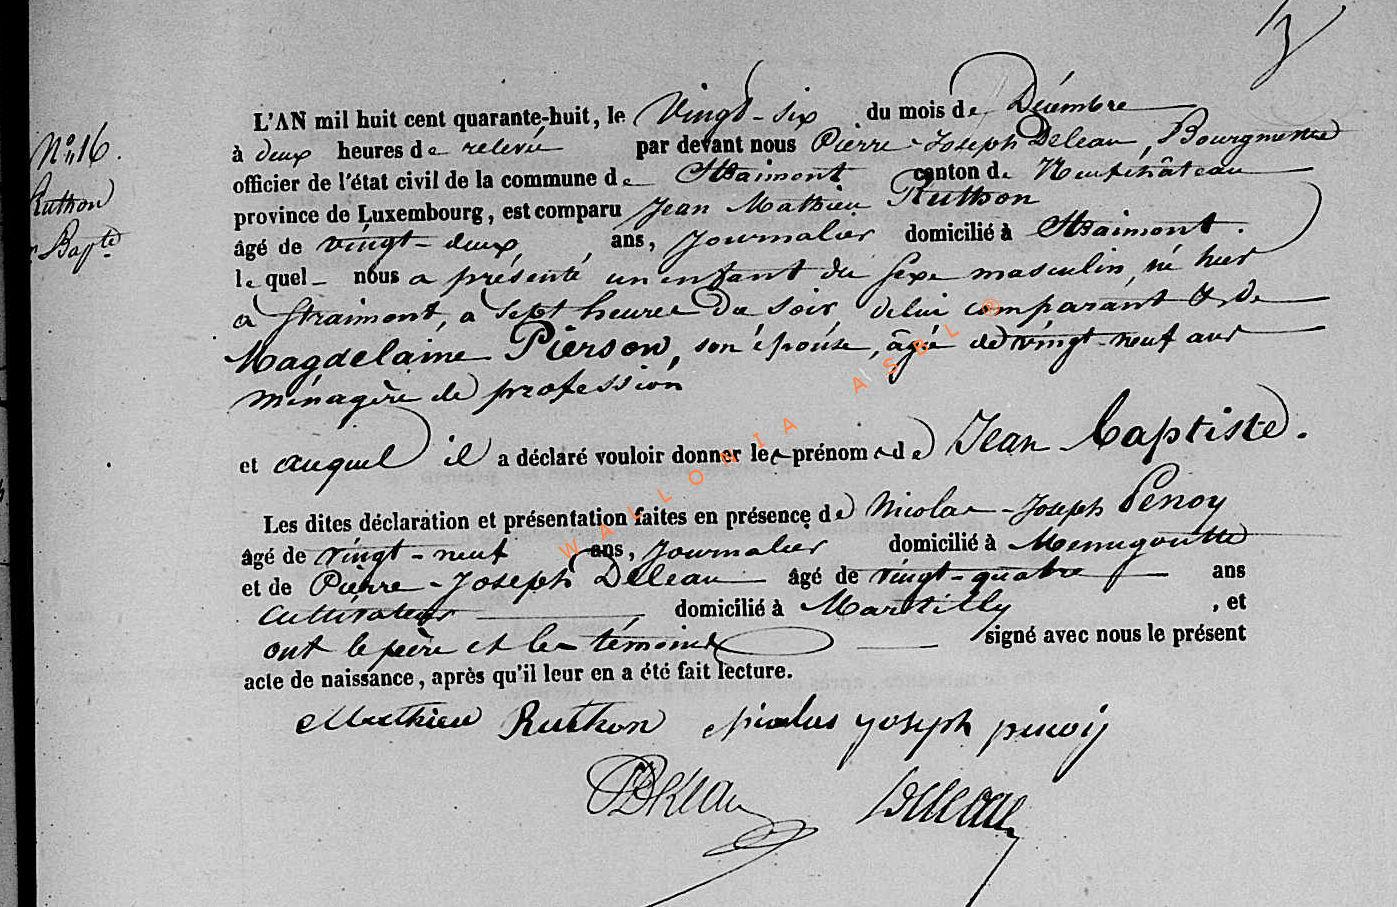 3
N° 16.
Ruthon
Bapte
L'AN mil huit cent quarante-huit, le Vingt-six du mois de Décembre
à deux heures de relevée par devant nous Pierre-Joseph Deleau, Bourgmestre
officier de l'état civil de la commune de Straimont canton de Neufchâteau
province de Luxembourg, est comparu Jean Mathieu Ruthon
âgé de vingt-deux ans, Journalier domicilié à Straimont.
le quel nous a présenté un enfant du sexe masculin, né hier
à Straimont, à sept heures du soir de lui comparant & de
Magdelaine Pierson, son épouse, âgée de vingt-neuf ans
ménagère de profession
et auquel il a déclaré vouloir donner les prénoms de Jean Baptiste.
Les dites déclaration et présentation faites en présence de Nicolas-Joseph Penoy
âgé de vingt-neuf ans, Journalier domicilié à Menugoutte
et de Pierre-Joseph Deleau âgé de vingt-quatre ans
Cultivateur domicilié à Martilly, et
ont le père et les témoins signé avec nous le présent
acte de naissance, après qu'il leur en a été fait lecture.
Mathieu Ruthon Nicolas Joseph penoij
PJDeleau Deleau
WALLONIA ASBL ®